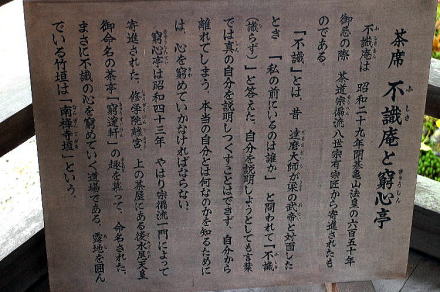 茶席 不識庵と窮心亭
ふしき
きゅうしん
不識庵は 昭和二十九年開基亀山法皇の六百五十年
御忌の際 茶道宗徧流八世宗有宗匠から寄進されたも
のである。
「不識」とは 昔 達磨大師が梁の武帝と対面した
とき 「私の前にいるのは誰か」と問われて「不識
(識らず)」と答えた。自分を説明しようとしても言葉
では真の自分を説明しつくすことはできず、自分から
離れてしまう。本当の自分とは何なのかを知るために
は、心を窮めていかなければならない。
窮心亭は昭和四十三年 やはり宗徧流一門によって
寄進された。修学院離宮 上の茶屋にある後水尾天皇
御命名の茶亭「窮邃軒」の趣を異って、命名された。
まさに不識の心を窮めていく道場である。露地を囲ん
でいる竹垣は「南禅寺垣」という。